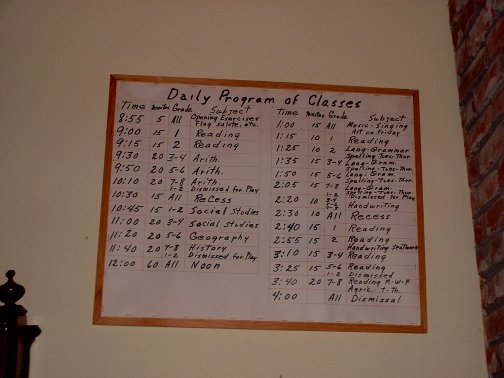 Daily Program of Classes
Time Minutes Grade Subject
8:55 5 All Opening Exercises
Flag salute, etc.
9:00 15 1 Reading
9:15 15 2 Reading
9:30 20 3-4 Arith.
9:50 20 5-6 Arith.
10:10 20 7-8 Arith.
1-2 Dismissed for Play
10:30 15 All Recess
10:45 15 1-2 Social Studies
11:00 20 3-4 Social Studies
11:20 20 5-6 Geography
11:40 20 7-8 History
1-2 Dismissed for Play
12:00 60 All Noon
Time Minutes Grade Subject
1:00 15 All Music-Singing
Art on Friday
1:15 10 1 Reading
1:25 10 2 Lang-Grammar
Spelling-Tues-Thur.
1:35 15 3-4 Lang-Gram.
Spelling-Tues-Thur.
1:50 15 5-6 Lang-Gram.
Spelling-Tues-Thur.
2:05 15 7-8 Lang-Gram.
Spelling-Tues-Thur.
1-2 Dismissed for Play
2:20 10 3-4 Handwriting
2:30 10 All Recess
2:40 15 1 Reading
2:55 15 2 Reading
Handwriting Seatwork
3:10 15 3-4 Reading
3:25 15 5-6 Reading
1-2 Dismissed
3:40 20 7-8 Reading M-W-F
Agric. T-Th.
4:00 All Dismissal